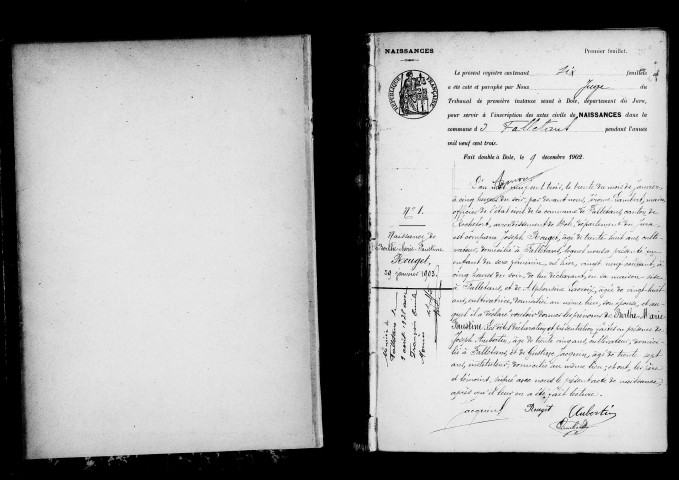 NAISSANCES
Premier feuillet.
RÉPUBLIQUE FRANÇAISE
Le présent registre contenant six feuillets
a été coté et paraphé par Nous Juge du
Tribunal de première instance séant à Dole, département du Jura,
pour servir à l'inscription des actes civils de NAISSANCES dans la
commune d Falletans pendant l'année
mil neuf cent trois.
Fait double à Dole, le 9 décembre 1902.
N° 1.
Naissance de
Berthe Marie Faustine
Rouget
29 janvier 1903
L'an mil neuf cent trois, le trente du mois de janvier
à cinq heures du soir, par devant nous, Lambert, maire
officier de l'état civil de la commune de Falletans, canton de
Rochefort, arrondissement de Dole, département du Jura
est comparu Joseph Rouget, âgé de trente huit ans, culti-
vateur, domicilié à Falletans, lequel nous a présenté un
enfant du sexe féminin, né hier, vingt neuf courant, à
cinq heures du soir, de lui déclarant, en sa maison sise
à Falletans, et de Alphonsine, âgée de vingt huit
ans, cultivatrice, domiciliée au même lieu, son épouse, et au-
quel il a déclaré vouloir donner les prénoms de Berthe-Marie-
Faustine. Lesdites déclaration et présentation faites en présence de
Joseph Aubertin, âgé de trente cinq ans, cultivateur, domici-
lié à Falletans, et de Gustave Jacquin, âgé de trente sept
ans, instituteur, domicilié au même lieu; et ont, les père
et témoins, signé avec nous le présent acte de naissance,
après qu'il leur en a été fait lecture.
Mariée à
Falletans le
août 1925 avec
François Emile
Jacquin Rouget Aubertin
Lambert